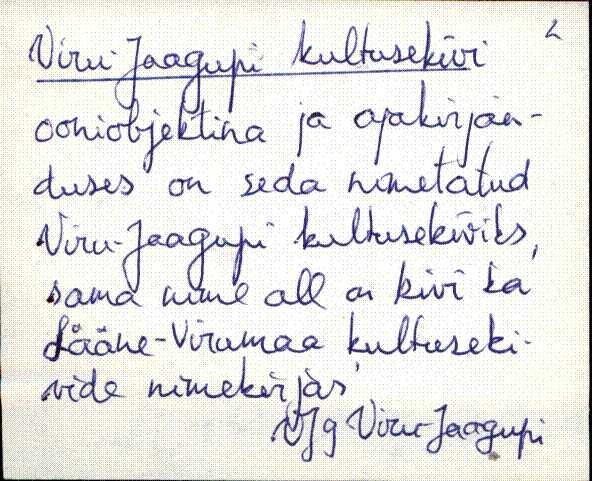 2
Viru-Jaagupi kultusekivi
ooniobjektina ja ajakirjan-
duses on seda nimetatud
Viru-Jaagupi kultusekiviks,
sama nime all on kivi ka
Lääne-Virumaa kultuseki-
vide nimekirjas,
VJg Viru-Jaagupi